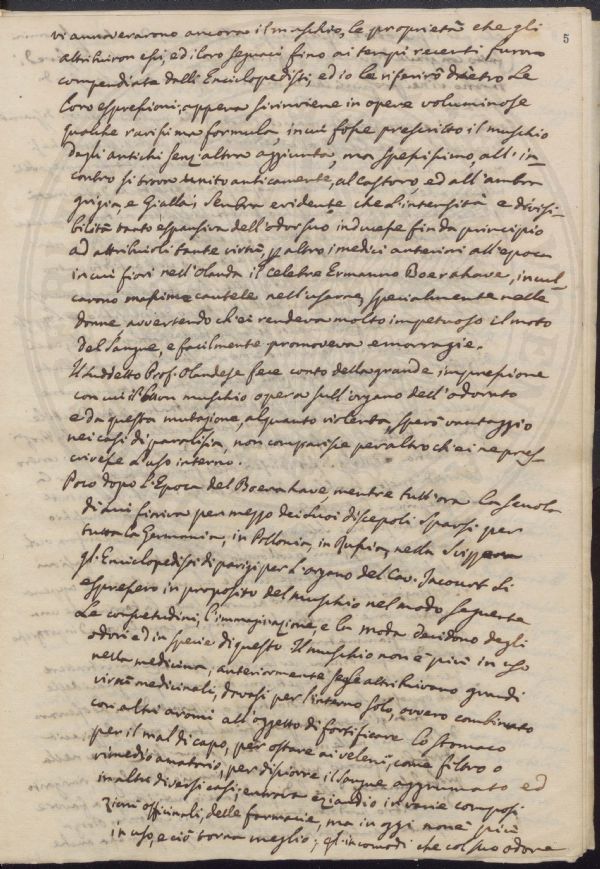 5
vi annoverarono ancora il maschio, le proprietà che gli
attribuiron essi, ed i loro seguaci fino ai tempi recenti furon
compendiate dalli Enciclopedisti, ed io le riferirò dietro le
loro espressioni; appena si rinviene in opere voluminose
qualche rarissima formula, in cui fosse prescritto il muschio
dagli antichi senz'altra aggiunta, ma spessissimo, all'in-
contro si trova unito anticamente, al castoro, ed all'ambra
grigia, e gialla; sembra evidente che l'intensità e divisi-
bilità tanto espansiva dell'odor suo inducesse fin da principio
ad attribuirli tante virtù, altro i medici anteriori all'epoca
in cui fiorì nell'Olanda il celebre Ermanno Boerahave, incul-
cavono massime cautele nell'usarne, specialmente nelle
donne avvertendo ch'ei rendeva molto impetuoso il moto
del sangue, e facilmente promoveva emorragie.
Il suddetto Prof. Olandese fece conto della grande impressione
con cui il buon muschio opera sull'organo dell'odorato
e da questa mutazione, alquanto violenta, sperò vantaggio
nei casi di paralisia, non comparisce peraltro ch'ei ne pres-
crivesse l'uso interno.
Poco dopo l'Epoca del Boerahave, mentre tutt'ora la scuola
di lui fioriva per mezzo dei suoi discepoli sparsi per
tutta la Germania, in Pollonia, in Russia, nella
gl'Enciclopedisti di parigi per l'organo del Cav. Jacourt si
espressero in proposito del muschio nel modo seguente
Le consuetudini, l'immaginazione, e la moda decidono degli
odori ed in specie di questo. Il muschio non è più in uso
nella medicina, anteriormente segli attribuivano grandi
virtù medicinali, davasi per l'interno solo, ovvero combinato
con altri aromi all'oggetto di fortificare lo stomaco
per il mal di capo, per ostare ai veleni, come filtro o
rimedio amatorio, per disciorre il sangue aggrumato ed
in altri diversi casi; entrava eziandio in varie composi
zioni officinali, delle farmacie, ma in oggi non è più
in uso, e ciò torna meglio; gl'incomodi che col suo odore